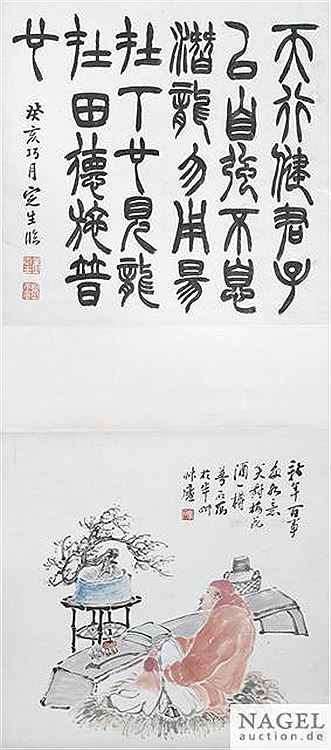 天行健君子
㠯自強不息
潛龍勿用昜
在下也見龍
在田德施普
也
癸亥巧月定生臨
新年百事
如意
笑對梅花
酒一樽
石寫
於半
艸廬
NAGEL
auction.de